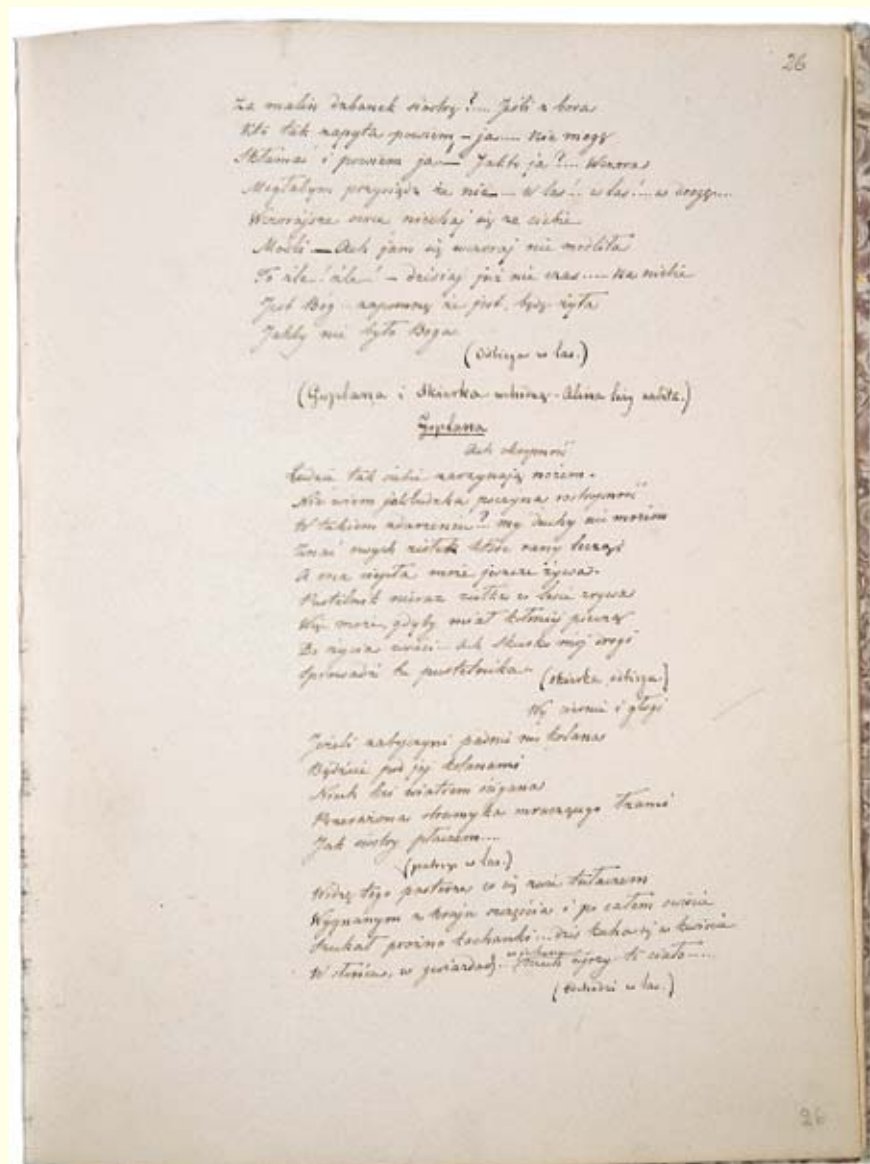 26
Za malin dzbanek siostrę?... Jeśli z bora
Kto tak zapyta powiem, – ja.... Nie mogę
Skłamać i powiem ja — Jakto ja?.... Wczora
Mogłabym przysiądz że nie — w las!.. w las!... w drogę....
Wczorajsze serce niechaj się za ciebie
Modli — Ach jam się wczoraj nie modliła
To źle! źle! – dzisiaj już nie czas.... Na niebie
Jest Bóg... zapomnę że jest, będę żyła
Jakby nie było Boga
(Odbiega w las.)
(Goplana i Skierka wchodzą – Alina leży zabita.)
Goplana
Ach okropność
Ludzie tak siebie zarzynają nożem.
Nie wiem jak ludzka poczyna roztropność
W takiem zdarzeniu?... my duchy nie możem
Znać owych ziółek które rany leczą;
A ona ciepła może jeszcze żywa.
Pustelnik nieraz ziółka w lesie zrywa
Więc może, gdyby miał pieczę
Do życia wróci... Ach Skierko mój drogi
Sprowadź tu pustelnika. (Skierka odbiega)
Wy ciernie i głogi
Jeżeli zabójczyni padnie na kolana
Bądźcie pod jej kolanami
Niech liść wiatrem ścigana
Przerażona strumyka mruczącego łzami
Jak siostry płaczem....
(patrząc w las.)
Widzę tego pasterza co się zwie tułaczem
Wygnanym z kraju szczęścia i po całem świecie
Szukał próżno kochanki... dziś kocha się w kwiecie
W słońcu, w gwiazdach... niech ujrzy to ciało.....
(Odchodzi w las.)
26